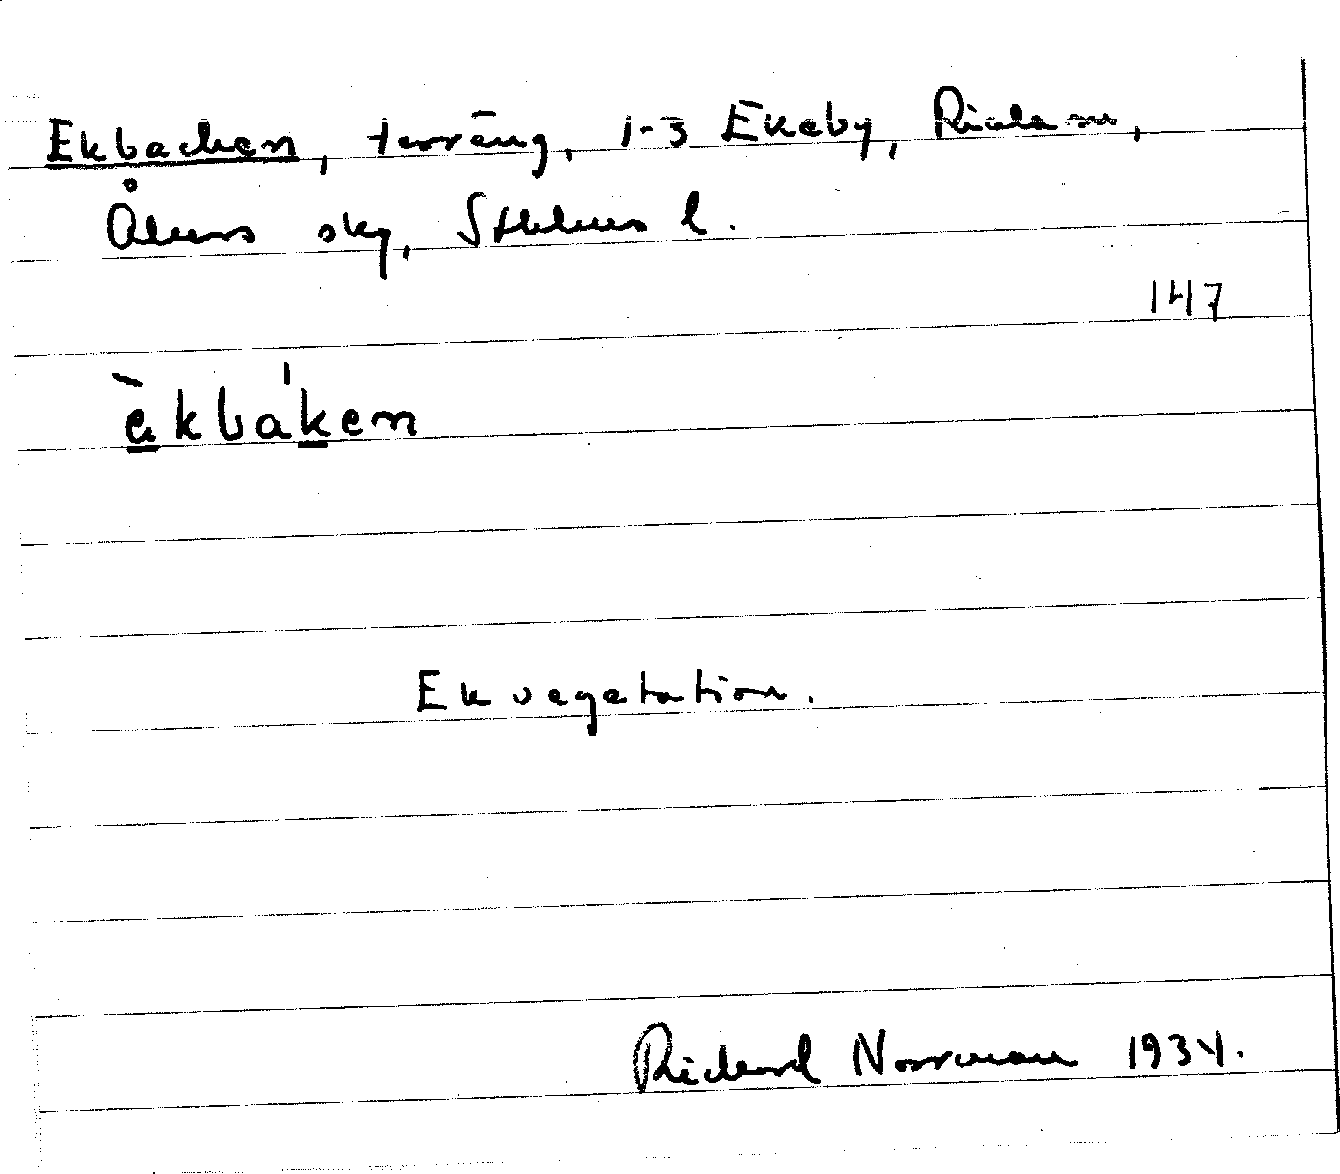 Ekbacken, terräng, 1-3 Ekeby, Riala sn,
Åkers sky, Sthlms l.
147
èkbáken
Ekvegetation.
Richard Norrman 1934.